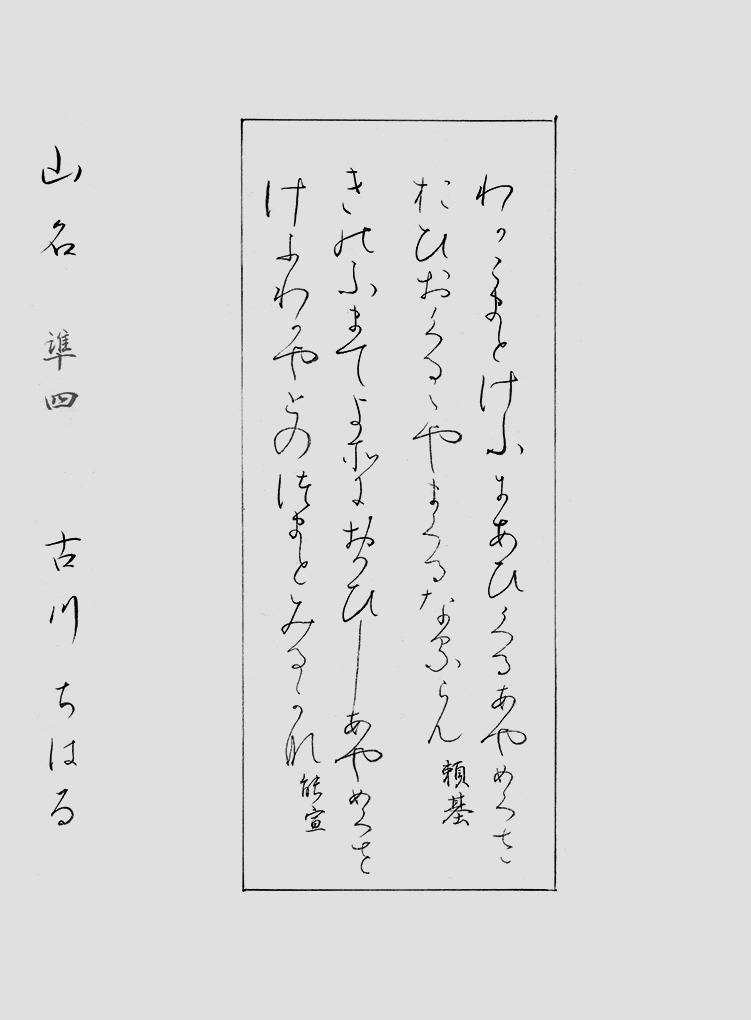 わかこまとけふにあひくるあやめくさ
おひおくるゝやまくるなるらん 頼基
きのふまてよそにおもひしあやめくさ
けふわかやとのつまとみるかな 能宣
山名 準四 古川 ちはる